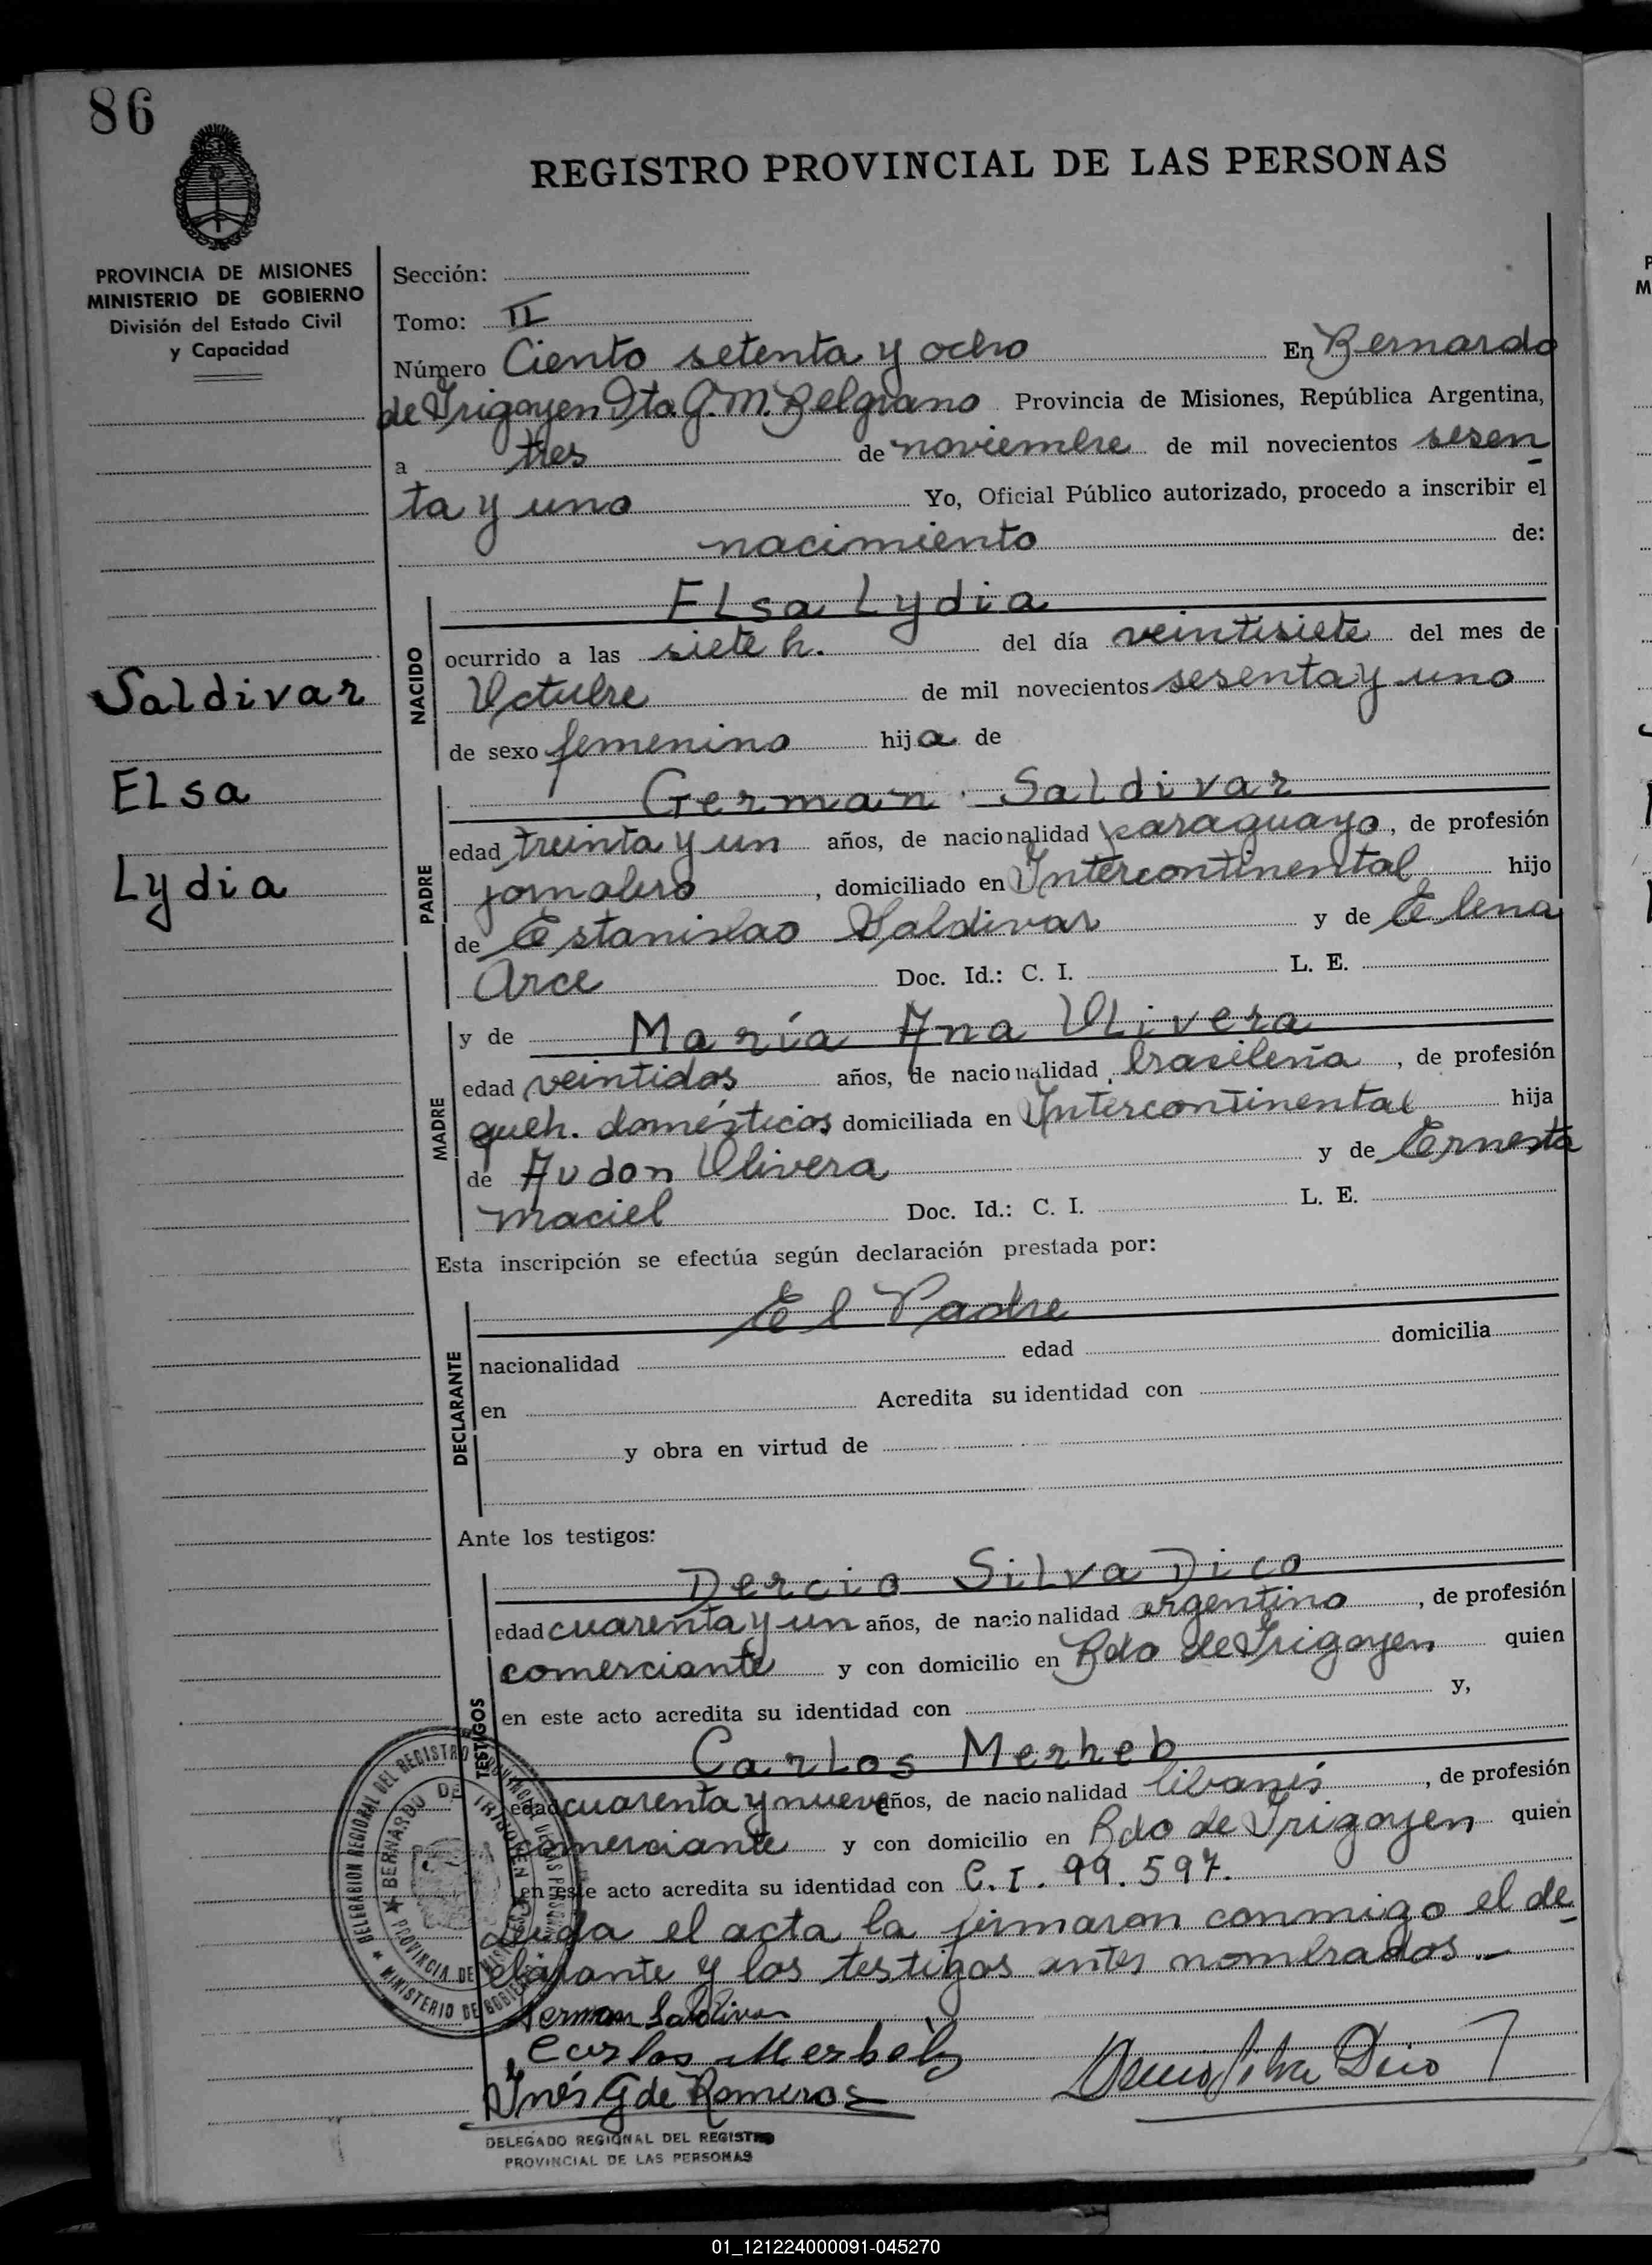 86
REGISTRO PROVINCIAL DE LAS PERSONAS
PROVINCIA DE MISIONES
MINISTERIO DE GOBIERNO
División del Estado Civil
y Capacidad
Saldivar
Elsa
Lydia
Sección:
Tomo: II
Número Ciento setenta y ocho En Bernardo
de Irigoyen Dto. G. M. Belgrano Provincia de Misiones, República Argentina,
a tres de noviembre de mil novecientos sesen-
ta y uno Yo, Oficial Público autorizado, procedo a inscribir el
nacimiento de:
NACIDO
Elsa Lydia
ocurrido a las siete h. del día veintisiete del mes de
Octubre de mil novecientos sesenta y uno
de sexo femenino hija de
PADRE
German Saldivar
edad treinta y un años, de nacionalidad paraguayo, de profesión
jornalero, domiciliado en Intercontinental hijo
de Estanislao Saldivar y de Elena
Arce Doc. Id.: C. I. L. E.
MADRE
y de María Ana Olivera
edad veintidos años, de nacionalidad brasileña, de profesión
queh. domésticos domiciliada en Intercontinental hija
de Audon Olivera y de Ernesta
Maciel Doc. Id.: C. I. L. E.
Esta inscripción se efectúa según declaración prestada por:
DECLARANTE
El Padre
nacionalidad edad domicilia
en Acredita su identidad con
y obra en virtud de
Ante los testigos:
TESTIGOS
Dercio Silva Dico
edad cuarenta y un años, de nacionalidad argentino, de profesión
comerciante y con domicilio en Bdo de Irigoyen quien
en este acto acredita su identidad con y,
Carlos Merheb
edad cuarenta y nueve años, de nacionalidad libanés, de profesión
comerciante y con domicilio en Bdo de Irigoyen quien
en este acto acredita su identidad con C. I. 99.597.
Leida el acta la firmaron conmigo el de-
clarante y los testigos antes nombrados.-
German Saldivar
Carlos Merheb
Inés G de Romeros
DELEGADO REGIONAL DEL REGISTRO
PROVINCIAL DE LAS PERSONAS
BERNARDO DE IRIGOYEN
PROVINCIA DE MISIONES
MINISTERIO DE GOBIERNO
01_121224000091-045270